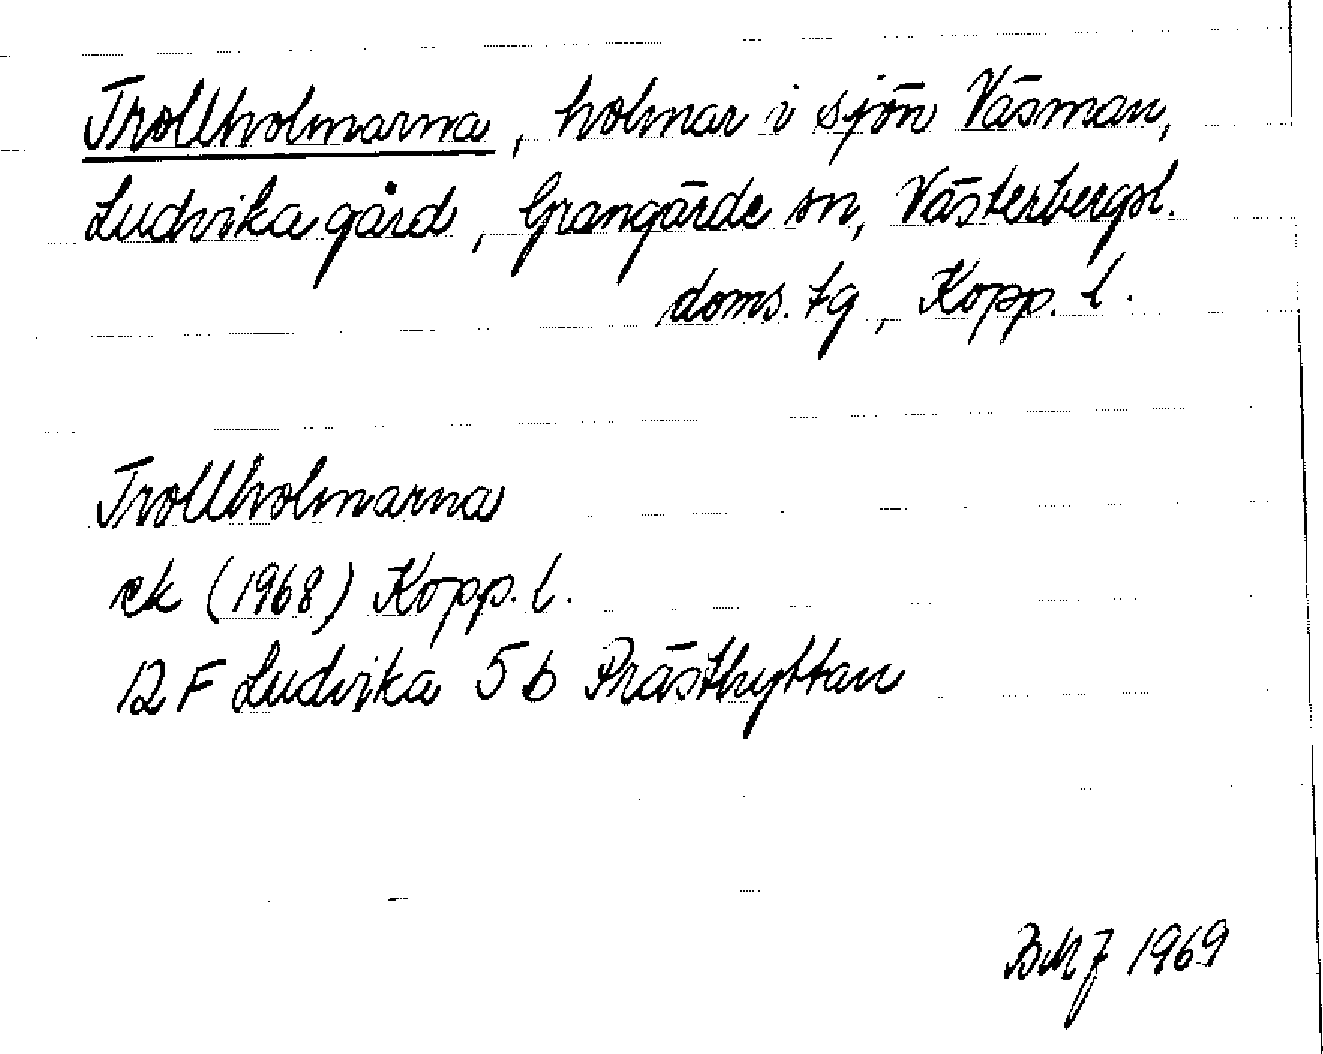 Trollholmarna, holmar i sjön Väsman,
Ludvika gård, Grangärde sn, Västerbergsl.
doms. tg, Kopp. l.
Trollholmarna
ek (1968) Kopp. l.
12 F Ludvika 5 b Prästhyttan
BMJ 1969